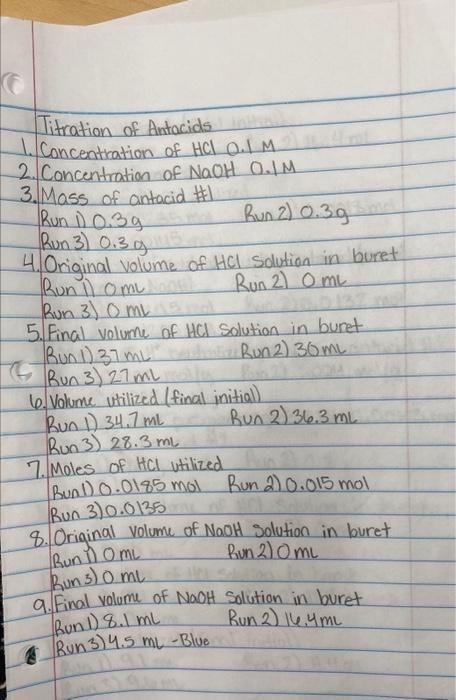 Titration of Antacids
1. Concentration of HCl 0.1 M
2. Concentration of NaOH 0.1M
3. Mass of antacid #1
Run 1) 0.3g Run 2) 0.3g
Run 3) 0.3g
4. Original volume of HCl solution in buret
Run 1) 0 mL Run 2) 0 mL
Run 3) 0 mL
5. Final volume of HCl solution in buret
Run 1) 37 mL Run 2) 30 mL
Run 3) 27 mL
6. Volume utilized (final initial)
Run 1) 34.7 mL Run 2) 36.3 mL
Run 3) 28.3 mL
7. Moles of HCl utilized
Run 1) 0.0185 mol Run 2) 0.015 mol
Run 3) 0.0135
8. Original volume of NaOH solution in buret
Run 1) 0 mL Run 2) 0 mL
Run 3) 0 mL
9. Final volume of NaOH solution in buret
Run 1) 8.1 mL Run 2) 16.4 mL
Run 3) 4.5 mL - Blue